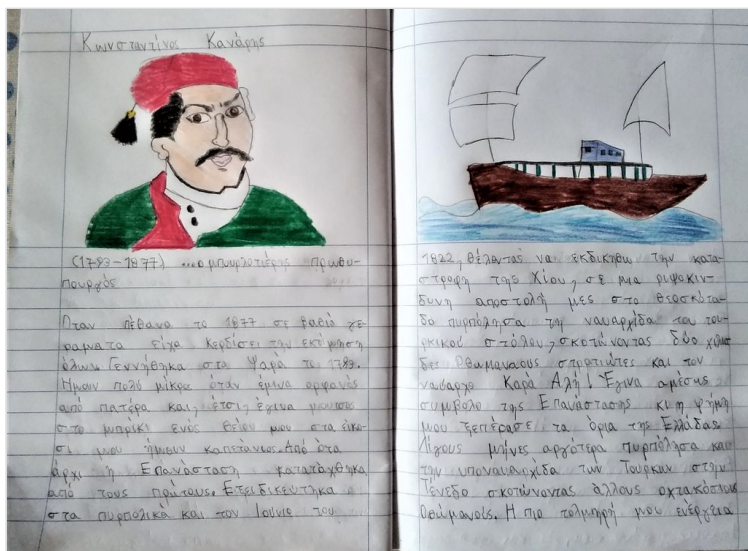 Κωνσταντίνος Κανάρης
(1793-1877) ...ο μπουρλοτιέρης πρωθυ-
πουργός
Όταν πέθανα το 1877 σε βαθιά γε-
ράματα είχα κερδίσει την εκτίμηση
όλων. Γεννήθηκα στα Ψαρά το 1793.
Ήμουν πολύ μικρός όταν έμεινα ορφανός
από πατέρα και, έτσι, έγινα μούτσος
στο μπρίκι ενός θείου μου στα είκο-
σι μου ήμουν καπετάνιος. Από ότα
άρχι η Επανάσταση κατατάχθηκα
από τους πρώτους. Ετειδικεύτηκα
στα πυρπολικά και τον Ιούνιο του
1822, θέλοντας να εκδικηθώ την κατα-
στροφή της Χίου, σε μια ριψοκίν-
δυνη αποστολή μες στο θεοσκότα-
δο πυρπόλησα τη ναυαρχίδα του του-
ρκικού στόλου, σκοτώνοντας δύο χιλιά
δες Οθωμανούς στρατιώτες και τον
ναύαρχο Καρά Αλή! Έγινα αμέσως
σύμβολο της Επανάστασης κι η φήμη
μου ξεπέρασε τα όρια της Ελλάδας
Λίγους μήνες αργότερα πυρπόλησα και
την υποναυαρχίδα των Τούρκων στην
Τένεδο σκοτώνοντας άλλους οχτακόσιους
Οθωμανούς. Η πιο τολμηρή μου ενέργεια